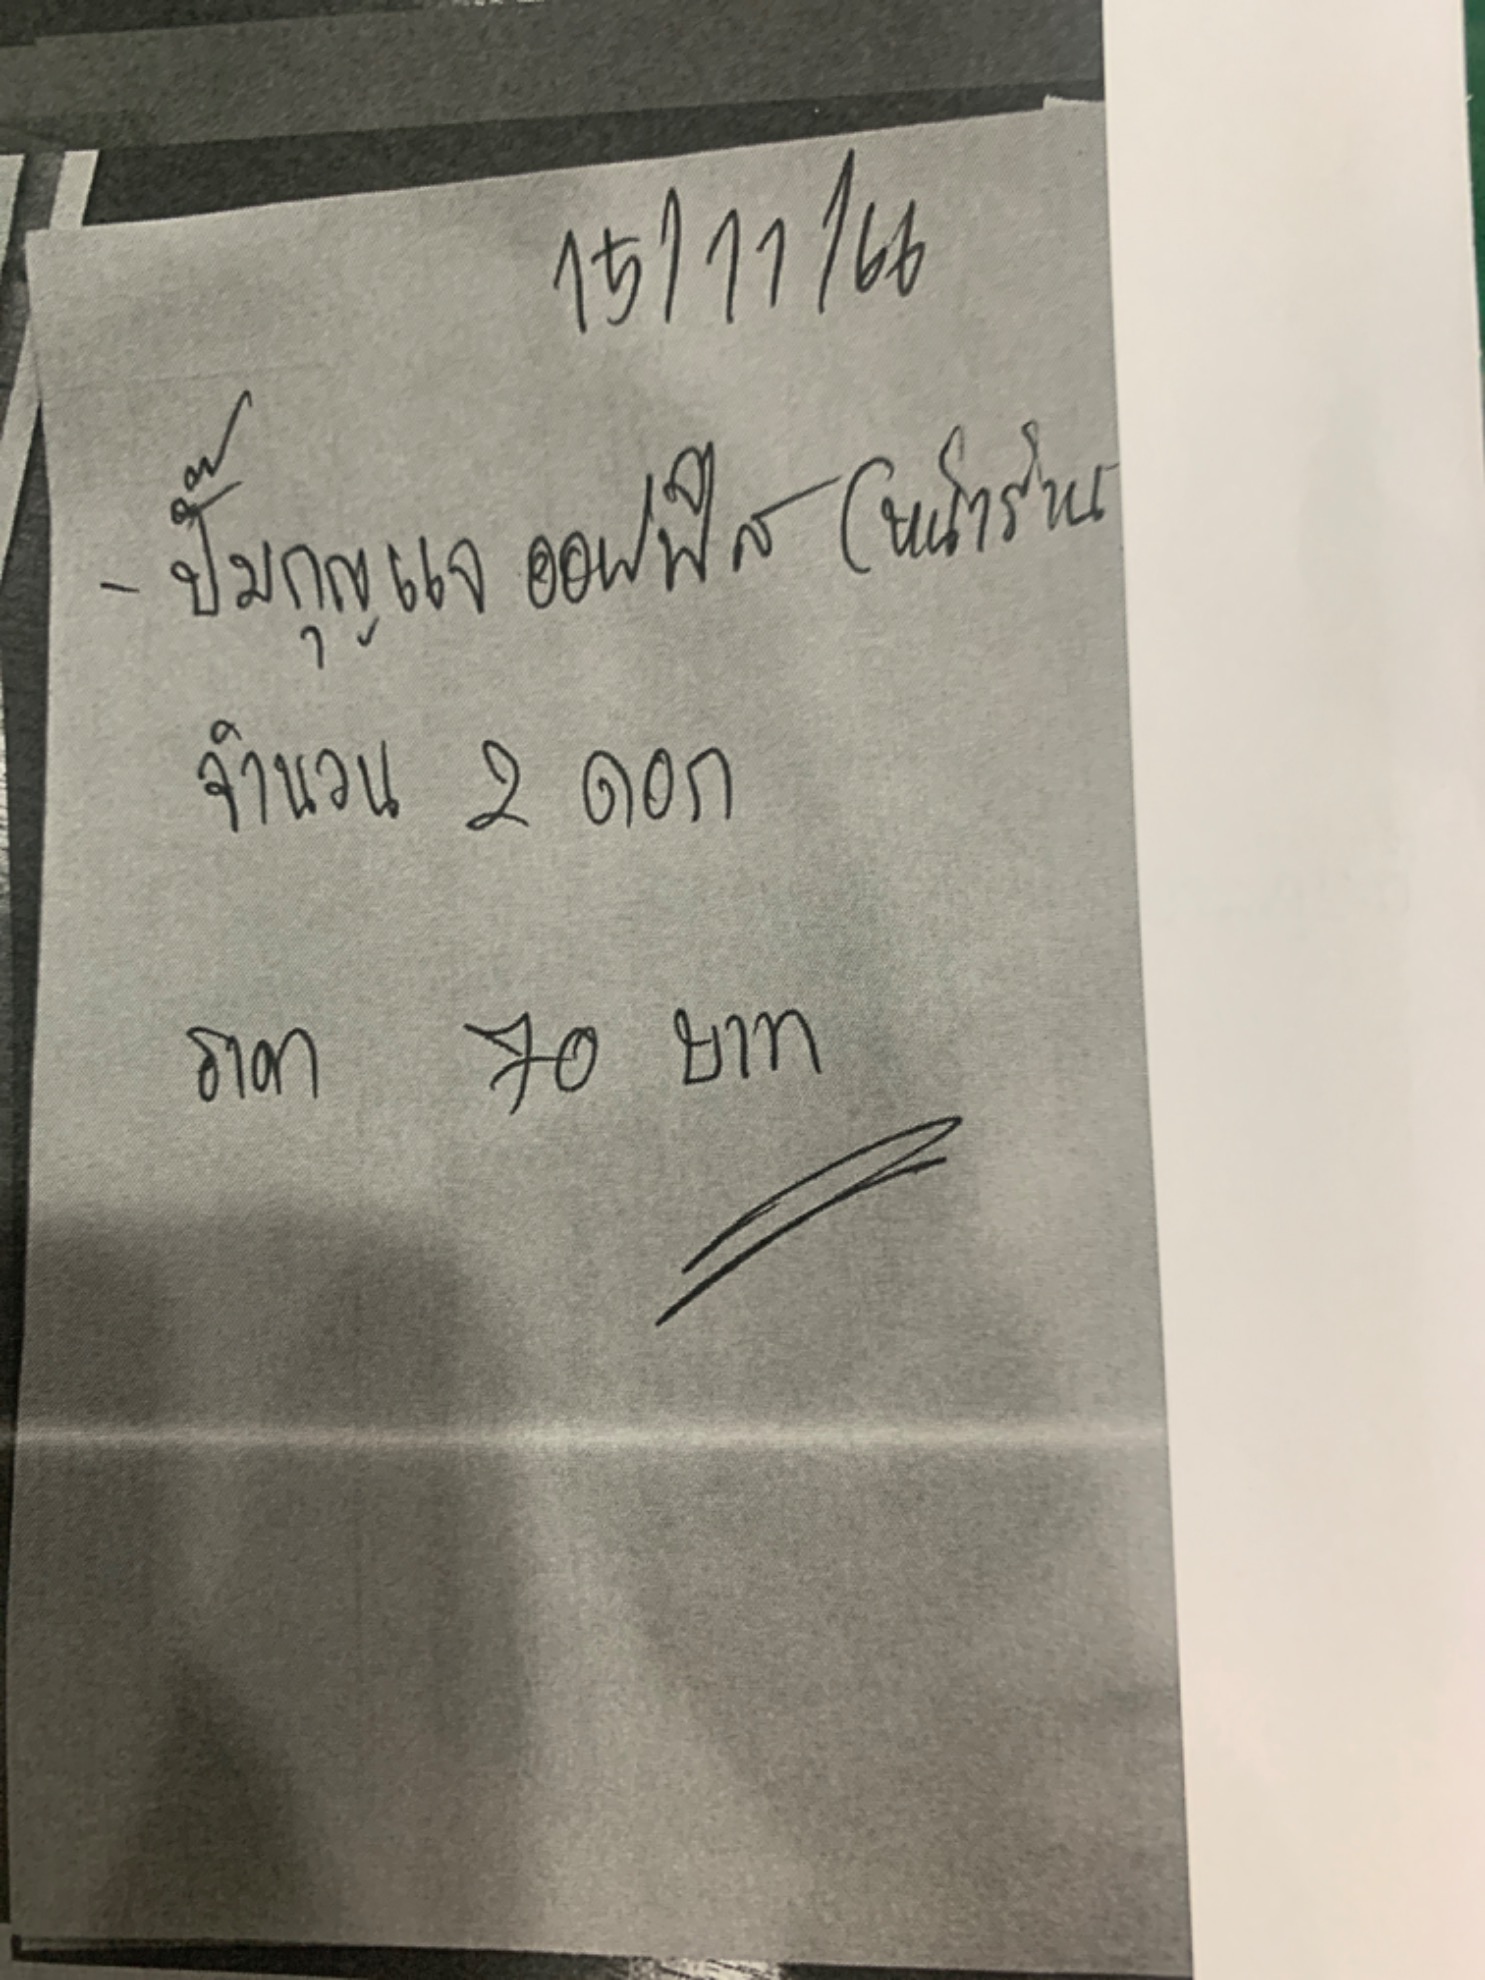 15/11/66
- ปั๊มกุญแจ ออฟฟิส (หน้าร้าน
จำนวน 2 ดอก
ราคา 70 บาท